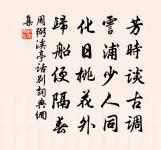 芳時談古調
霅浦少人同
化日桃花外
歸船便隔春
周弼溪亭話別詞典網
集